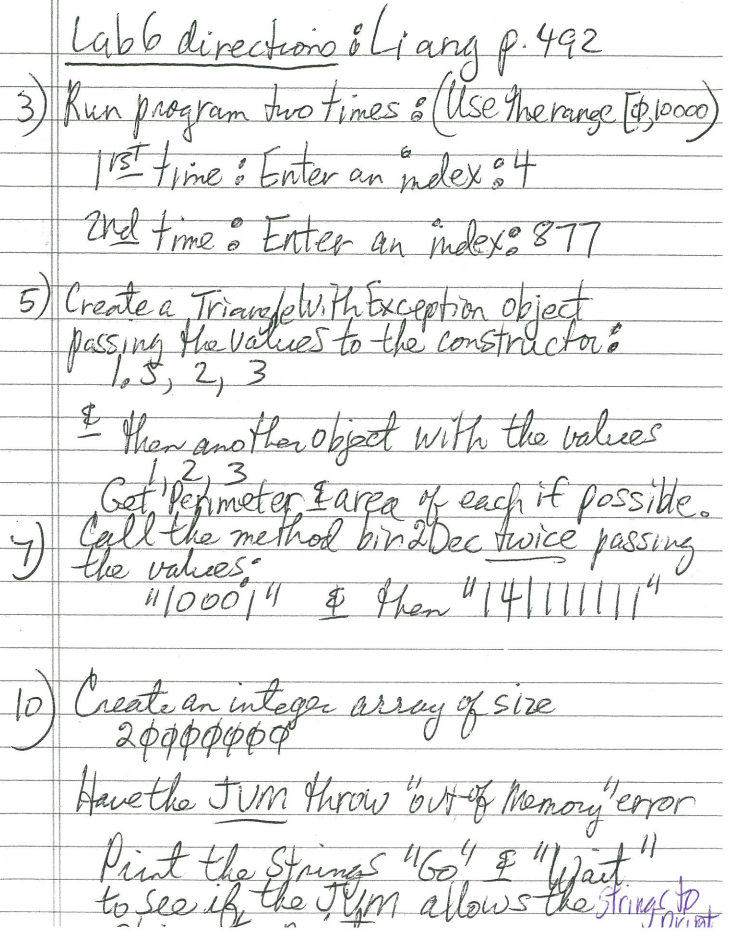 Lab 6 directions: Liang p. 492
3) Run program two times: (Use the range [0,10000)
1rst time: Enter an index: 4
2nd time: Enter an index: 877
5) Create a TriangleWithException object
passing the values to the constructor:
1.5, 2, 3
& then another object with the values
1, 2, 3
Get Perimeter & area of each if possible.
7) Call the method bin2Dec twice passing
the values:
"10001" & then "141111111"
10) Create an integer array of size
20000000
Have the JVM throw "out of Memory" error
Print the Strings "Go" & "Wait"
to see if the JVM allows the strings to
print